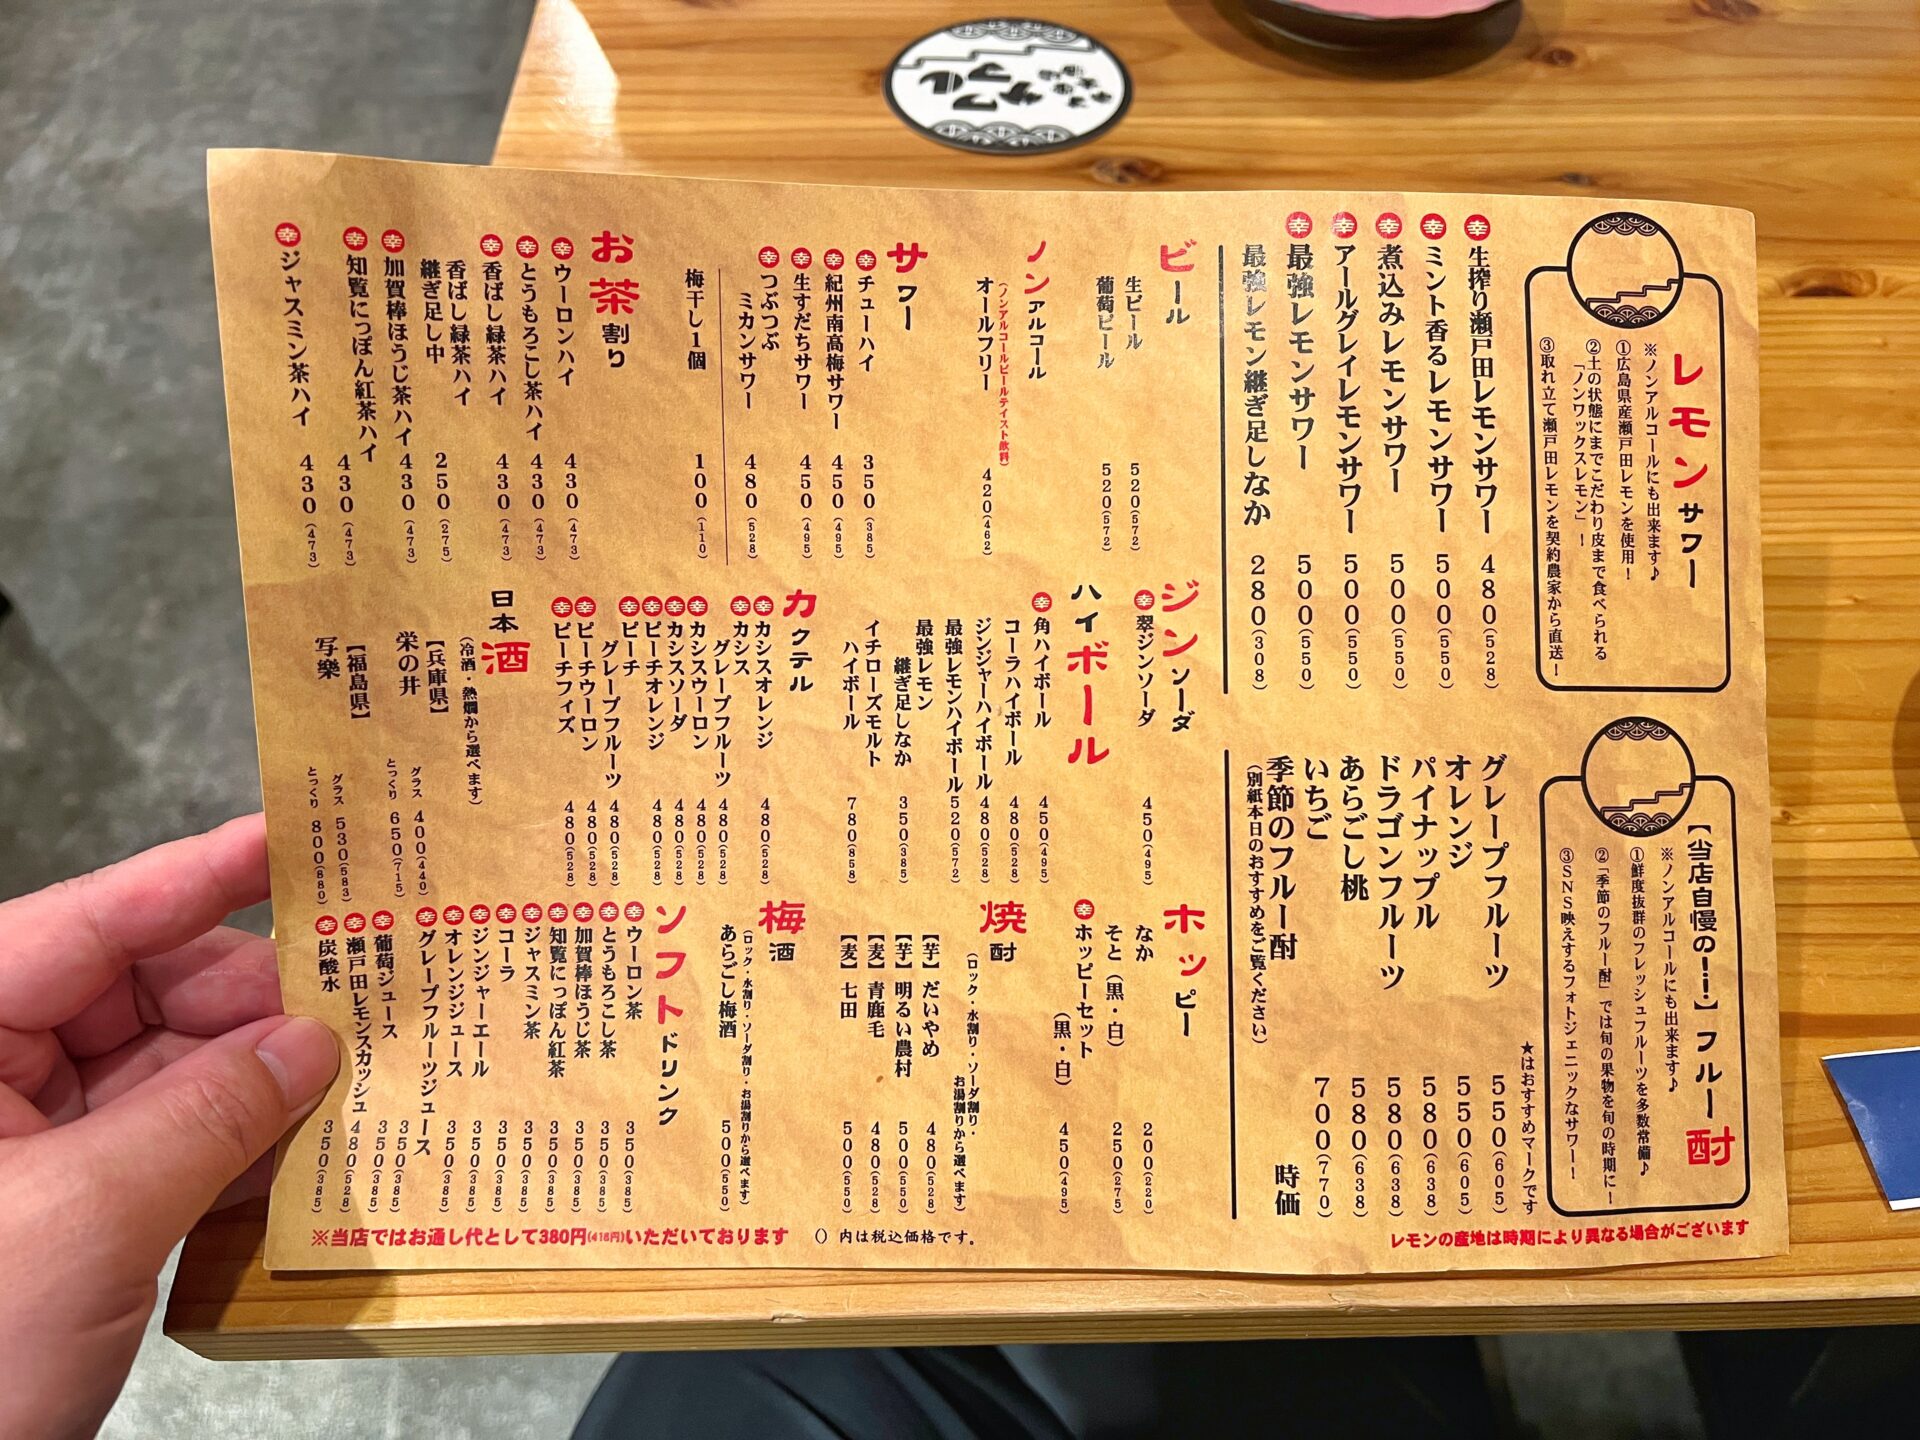 レモンサワー
※ノンアルコールにも出来ます♪
①広島県産瀬戸田レモンを使用!
②土の状態にまでこだわり皮まで食べられる
「ノンワックスレモン」!
③取れ立て瀬戸田レモンを契約農家から直送!
幸 生搾り瀬戸田レモンサワー 480(528)
幸 ミント香るレモンサワー 500(550)
幸 煮込みレモンサワー 500(550)
幸 アールグレイレモンサワー 500(550)
幸 最強レモンサワー 500(550)
最強レモン継ぎ足しなか 280(308)
【当店自慢の!!!】フルー酎
※ノンアルコールにも出来ます♪
①鮮度抜群のフレッシュフルーツを多数常備♪
②「季節のフルー酎」では旬の果物を旬の時期にー
③SNS映えするフォトジェニックなサワー!
★はおすすめマークです
グレープフルーツ 550(605)
オレンジ 550(605)
パイナップル 580(638)
ドラゴンフルーツ 580(638)
あらごし桃 580(638)
いちご 700(770)
季節のフルー酎 時価
(別紙本日のおすすめをご覧ください)
レモンの産地は時期により異なる場合がございます
ビール
生ビール 520(572)
葡萄ビール 520(572)
ノンアルコール
(ノンアルコールビールテイスト飲料)
オールフリー 420(462)
サワー
幸 チューハイ 350(385)
幸 紀州南高梅サワー 450(495)
幸 生すだちサワー 450(495)
幸 つぶつぶ
ミカンサワー 480(528)
梅干し1個 100(110)
お茶割り
幸 ウーロンハイ 430(473)
幸 とうもろこし茶ハイ 430(473)
幸 香ばし緑茶ハイ 430(473)
香ばし緑茶ハイ
継ぎ足し中 250(275)
幸 加賀棒ほうじ茶ハイ 430(473)
幸 知覧にっぽん紅茶ハイ 430(473)
幸 ジャスミン茶ハイ 430(473)
ジンソーダ
幸 翠ジンソーダ 450(495)
ハイボール
幸 角ハイボール 450(495)
コーラハイボール 480(528)
ジンジャーハイボール 480(528)
最強レモンハイボール 520(572)
最強レモン
継ぎ足しなか 350(385)
イチローズモルト
ハイボール 780(858)
カクテル
幸 カシスオレンジ 480(528)
幸 カシス
グレープフルーツ 480(528)
幸 カシスウーロン 480(528)
幸 カシスソーダ 480(528)
幸 ピーチオレンジ 480(528)
幸 ピーチ
グレープフルーツ 480(528)
幸 ピーチウーロン 480(528)
幸 ピーチフィズ 480(528)
日本酒
(冷酒・熱燗から選べます)
【兵庫県】
栄の井 グラス 400(440)
とっくり 650(715)
【福島県】
写樂 グラス 530(583)
とっくり 800(880)
ホッピー
なか 200(220)
そと(黒・白) 250(275)
幸 ホッピーセット
(黒・白) 450(495)
焼酎
(ロック・水割り・ソーダ割り・
お湯割りから選べます)
【芋】だいやめ 480(528)
【芋】明るい農村 500(550)
【麦】青鹿毛 480(528)
【麦】七田 500(550)
梅酒
(ロック・水割り・ソーダ割り・お湯割りから選べます)
あらごし梅酒 500(550)
ソフトドリンク
幸 ウーロン茶 350(385)
幸 とうもろこし茶 350(385)
幸 加賀棒ほうじ茶 350(385)
幸 知覧にっぽん紅茶 350(385)
幸 ジャスミン茶 350(385)
幸 コーラ 350(385)
幸 ジンジャーエール 350(385)
幸 オレンジジュース 350(385)
幸 グレープフルーツジュース 350(385)
幸 葡萄ジュース 350(385)
幸 瀬戸田レモンスカッシュ 480(528)
幸 炭酸水 350(385)
※当店ではお通し代として380円(418円)いただいております
()内は税込価格です。